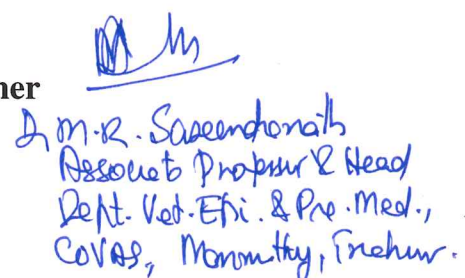 ner
Dr M.R. Saseendranath
Associate Professor & Head
Dept. Vet. Epi. & Pre. Med.,
COVAS, Mannuthy, Trichur.